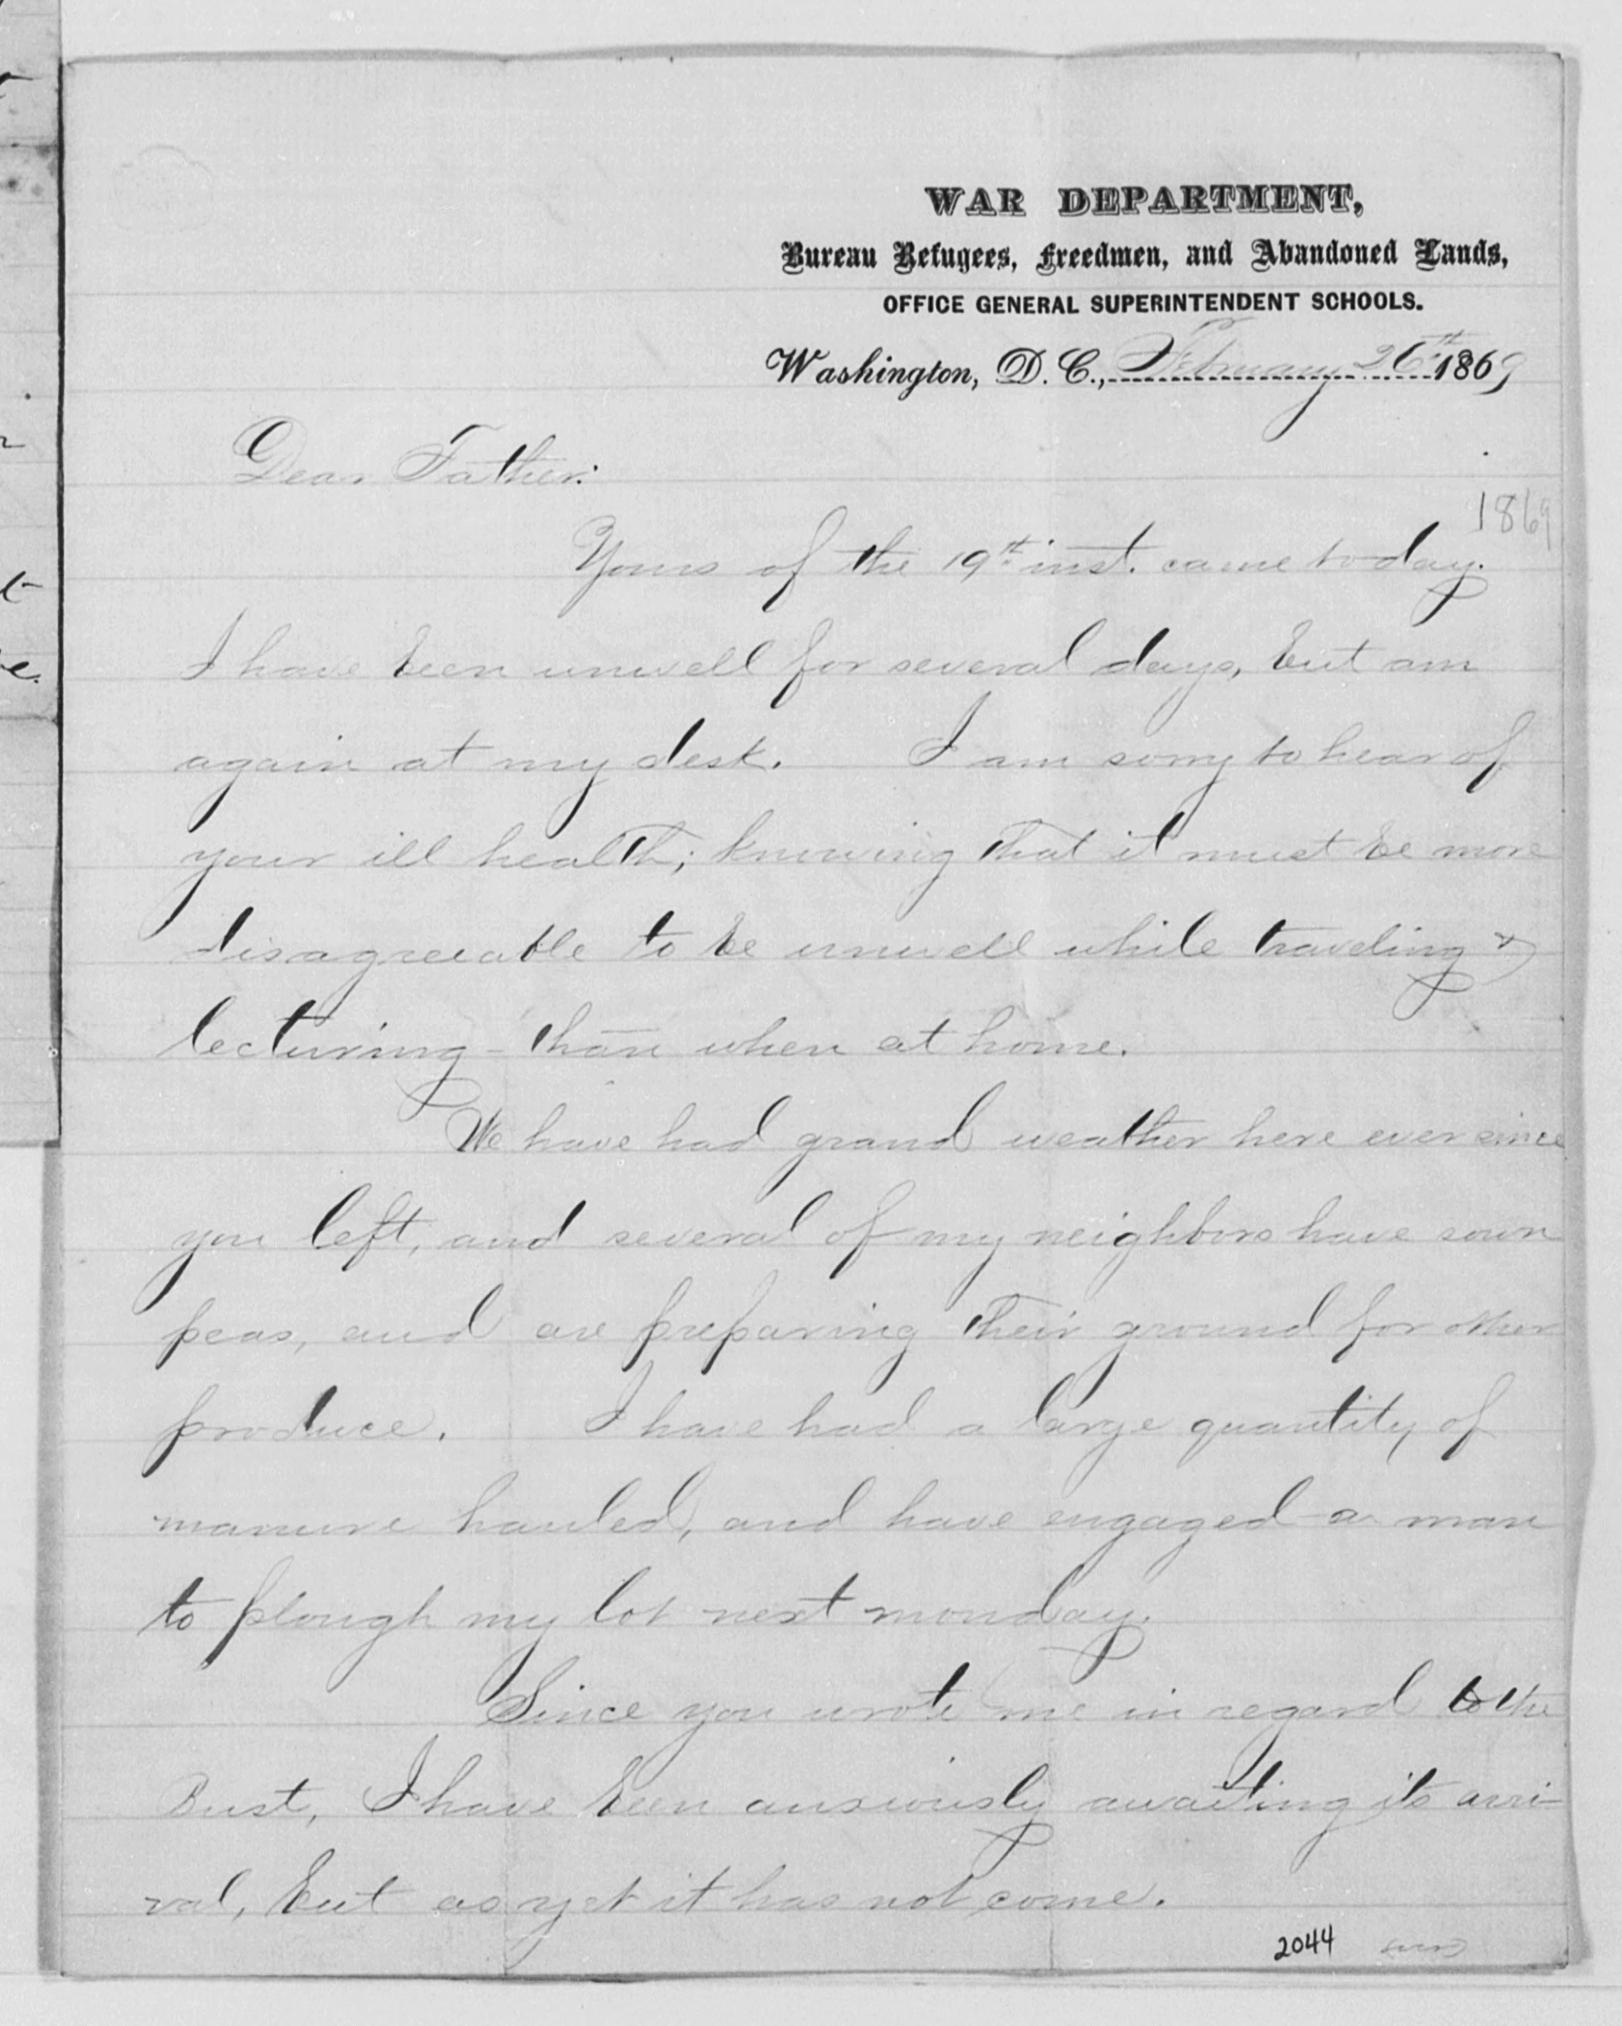 WAR DEPARTMENT,
Bureau Refugees, Freedmen, and Abandoned Lands,
OFFICE GENERAL SUPERINTENDENT SCHOOLS.
Washington, D. C., February 26th 1869
Dear Father:
1869
Yours of the 19th inst. came to day.
I have been unwell for several days, but am
again at my desk. I am sorry to hear of
your ill health; knowing that it must be more
disagreeable to be unwell while traveling &
lecturing - than when at home.
We have had grand weather here ever since
you left, and several of my neighbors have sown
peas, and are preparing their ground for other
produce. I have had a large quantity of
manure hauled, and have engaged a man
to plough my lot next monday.
Since you wrote me in regard to the
Bust, I have been anxiously awaiting its arri-
val, but as yet it has not come.
2044